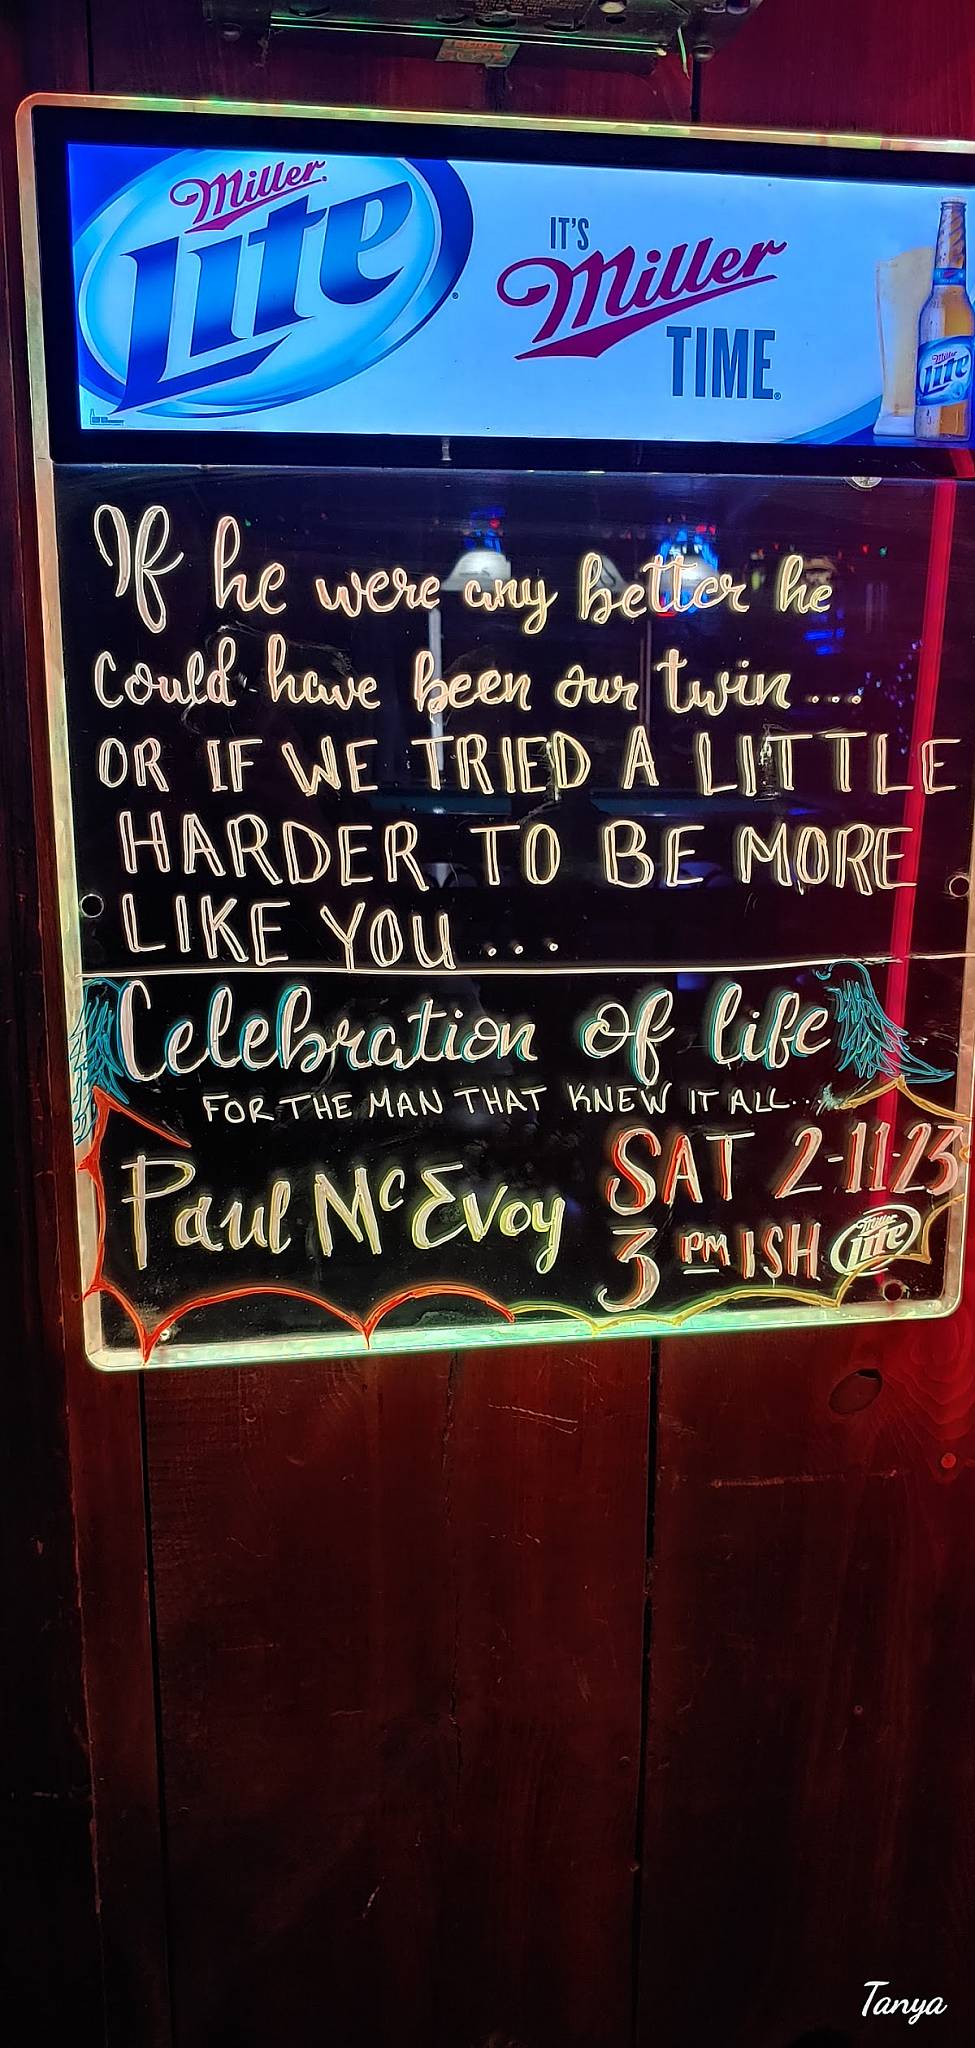 Miller
Lite
IT'S
Miller
TIME
Miller
Lite
If he were any better he
could have been our twin...
OR IF WE TRIED A LITTLE
HARDER TO BE MORE
LIKE YOU...
Celebration of life
FOR THE MAN THAT KNEW IT ALL...
Paul McEvoy
SAT 2-11-23
3 PM ISH
Miller
Lite
Tanya